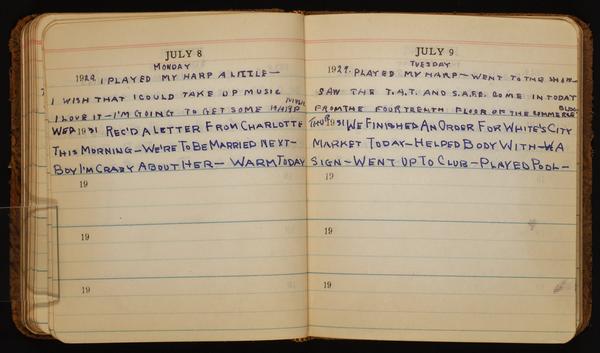 JULY 8
MONDAY
1929. I PLAYED MY HARP A LITTLE—
I WISH THAT I COULD TAKE UP MUSIC
I LOVE IT—I'M GOING TO GET SOME
WED 1931 REC'D A LETTER FROM CHARLOTTE
THIS MORNING—WE'RE TO BE MARRIED NEXT—
BOY I'M CRAZY ABOUT HER— WARM TODAY
19
19
19
JULY 9
TUESDAY
1929. PLAYED MY HARP—WENT TO THE SHOW—
SAW THE T.A.T. AND S.A.F.E. COME IN TODAY
BLDG—
FROM THE FOURTEENTH FLOOR OF THE COMMERCE
THURS 1931 WE FINISHED AN ORDER FOR WHITE'S CITY
MARKET TODAY—HELPED BODY WITH A
SIGN—WENT UP TO CLUB—PLAYED POOL—
19
19
19